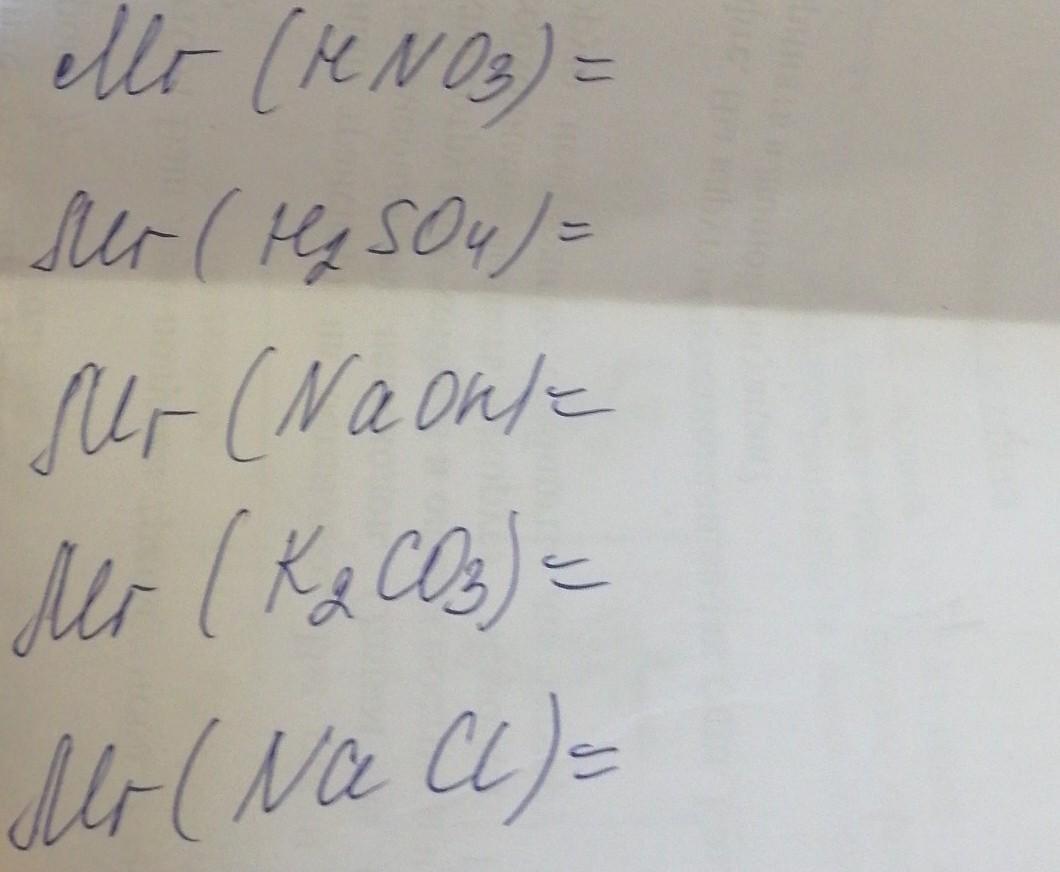 Mr (HNO3) =
Mr (H2SO4) =
Mr (NaOH) =
Mr (K2CO3) =
Mr (NaCl) =